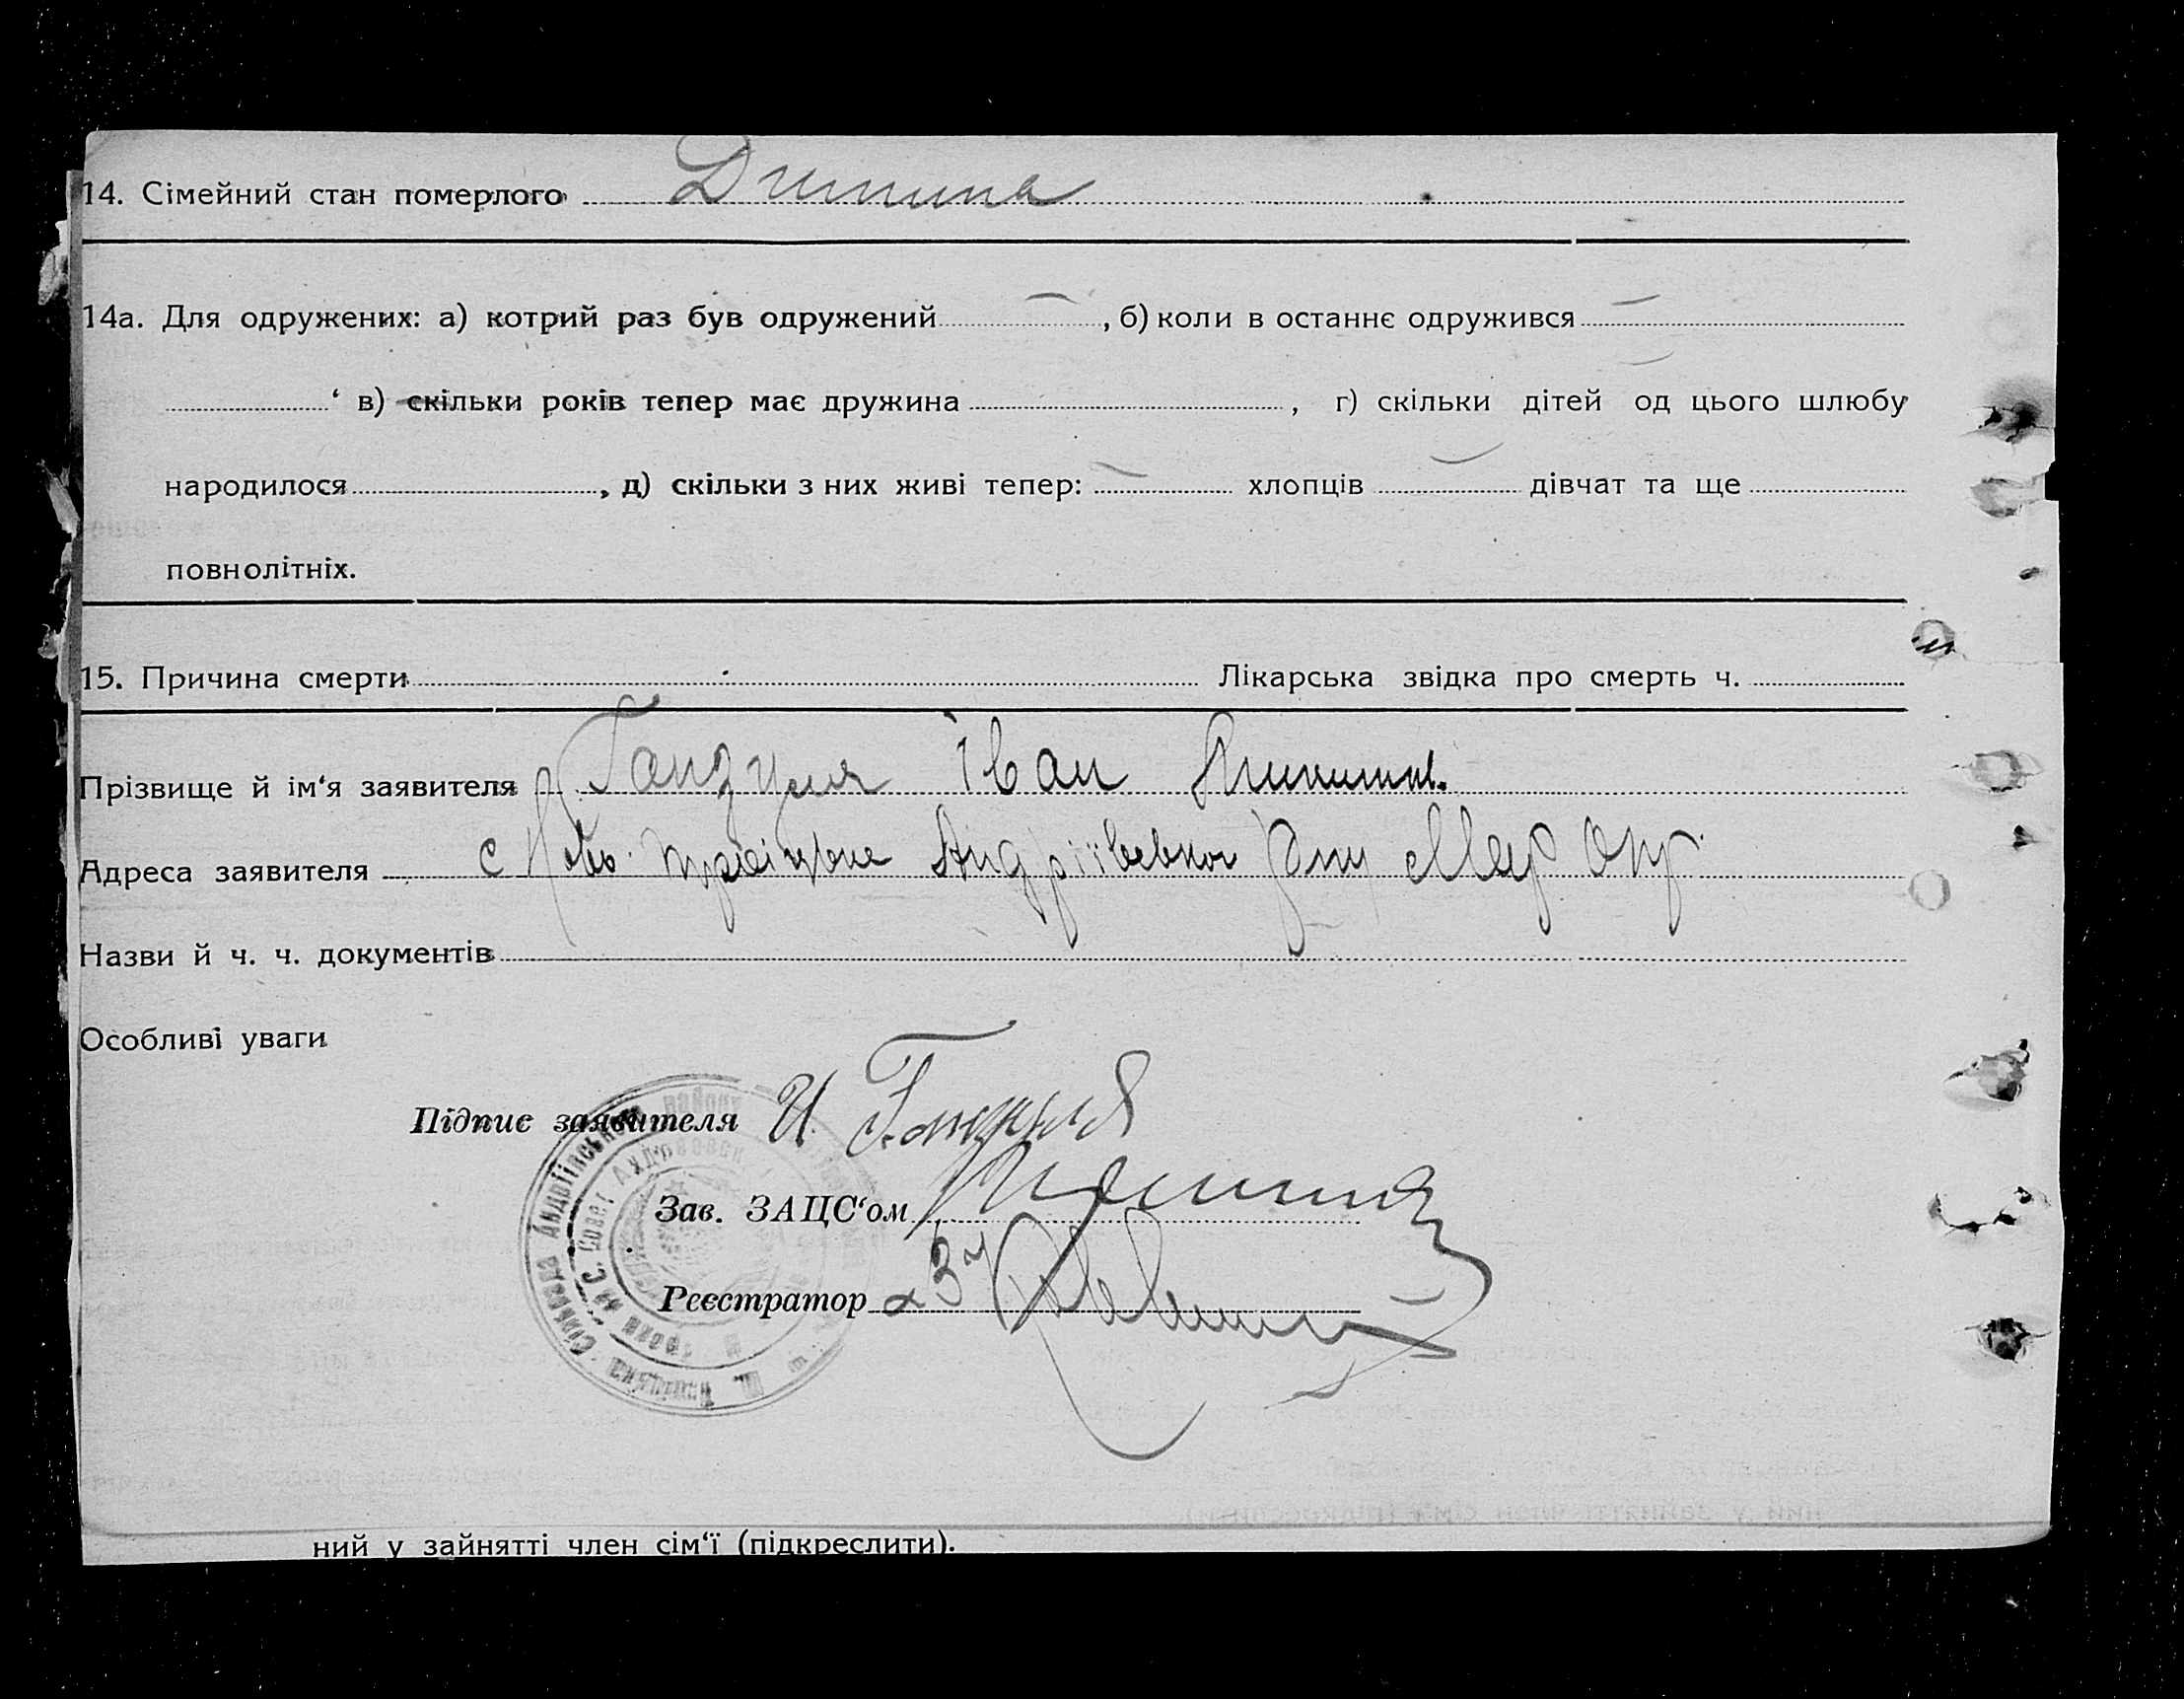 14. Сімейний стан померлого Дитина
14а. Для одружених: а) котрий раз був одружений — , б) коли в останнє одружився —
‘ в) скільки років тепер має дружина , г) скільки дітей од цього шлюбу
народилося , д) скільки з них живі тепер: — хлопців — дівчат та ще
повнолітніх.
15. Причина смерти Лікарська звідка про смерть ч.
Прізвище й ім‘я заявителя Гандзуля Іван Микитов.
Адреса заявителя с Андріївської Р-ну Мар Окр.
Назви й ч. ч. документів
Особливі уваги
Підпис заявителя И.
Зав. ЗАЦС‘ом
Реєстратор
Сільрада Андріївського
ний у зайнятті член сім‘ї (підкреслити).